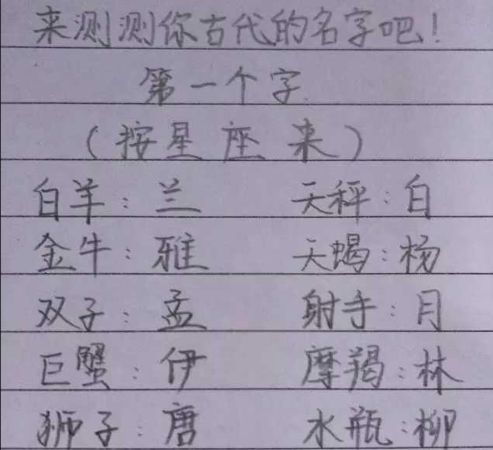 来测测你古代的名字吧!
第一个字
(按星座来)
白羊:兰 天秤:白
金牛:雅 天蝎:杨
双子:孟 射手:月
巨蟹:伊 摩羯:林
狮子:唐 水瓶:柳